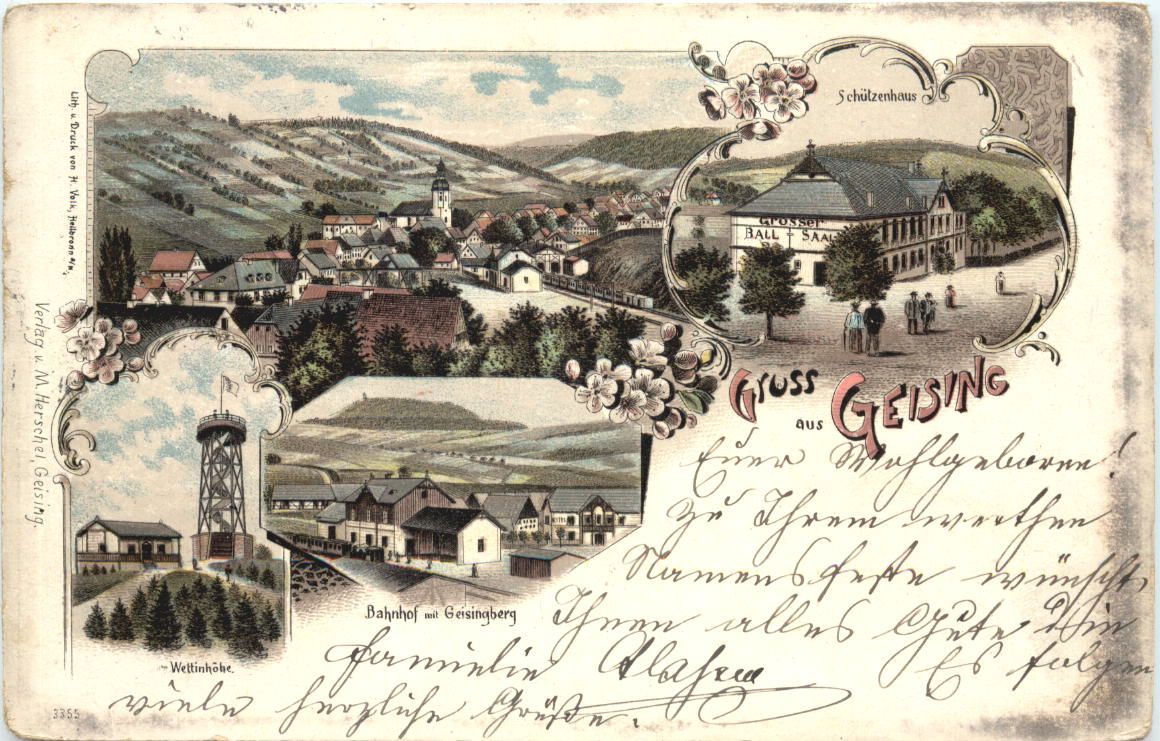 Schützenhaus
Grosser
BALL - SAAL
Lith. u. Druck von H. Volk, Heilbronn a/N.
Verlag v. M. Herschel, Geising.
GRUSS
aus GEISING
Bahnhof mit Geisingberg
Wettinhöhe.
3355
Euer Wohlgeboren!
Zu Ihrem werthen
Namensfeste wünscht
Ihnen alles Gute die
Familie
Es folgen
viele herzliche Grüße.